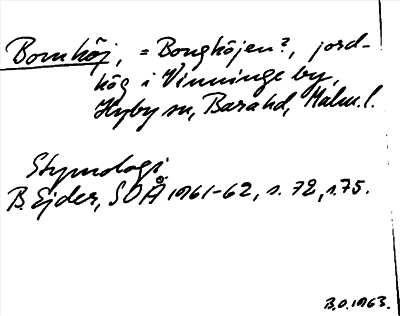 Bomhöj, = Bonghöjen?, jord-
hög i Vinninge by,
Hyby sn, Bara hd, Malm.l.
Etymologi
B. Ejder, SOÅ 1961-62, s. 72, s. 75.
B.O. 1963.